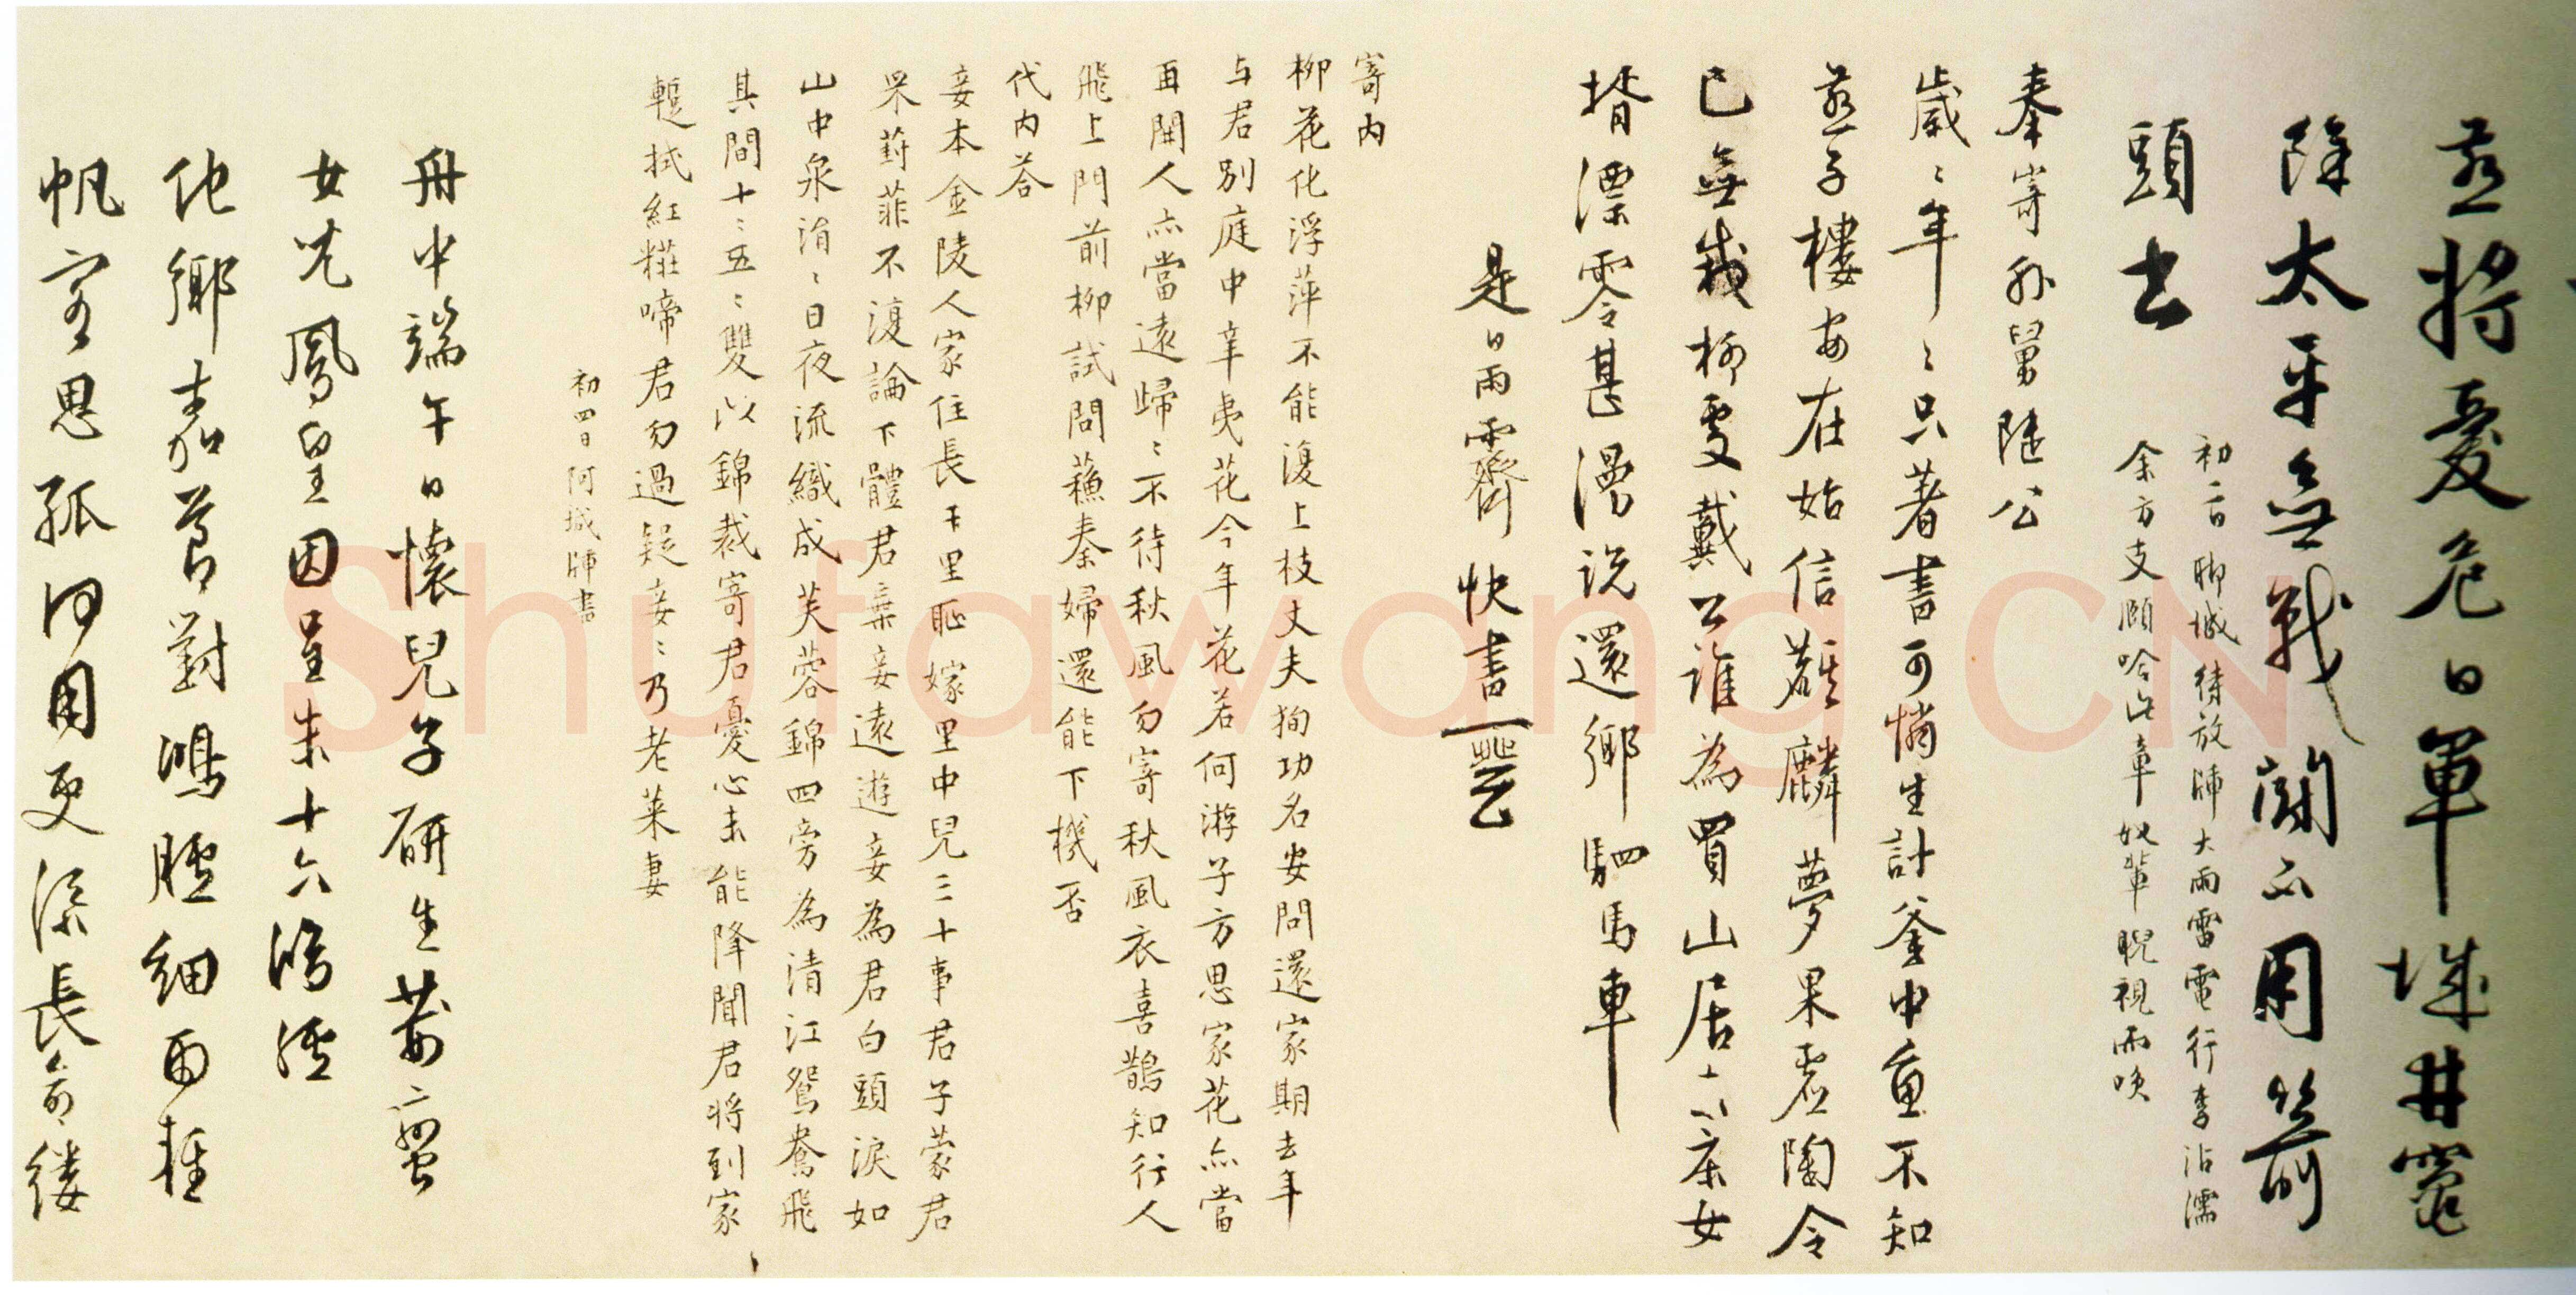 燕將憂危日軍城井竈
除太平無戰鬪不用箭
頭書
初二日聊城待放牐大雨雷電行李沾濡
余方支頤吟此章奴輩睨視而唉
奉寄孫舅陡公
歲〻年〻只著書可憐生計釜中魚不知
燕子樓安在姑信麒麟夢果虛陶令
已無栽柳更戴公誰為買山居一家女
揟漂零甚漫説還鄉駟馬車
是日雨霽快書一豐
寄内
柳花化浮萍不能復上枝丈夫狥功名安問還家期去年
与君別庭中辛夷花今年花若何游子方思家花亦當
再開人亦當遠歸〻不待秋風勿寄秋風衣喜鵲知行人
飛上門前柳試問蘓秦婦還能下機否
代内答
妾本金陵人家住長干里恥嫁里中兒三十事君子蒙君
采葑菲不復論下體君棄妾遠遊妾為君白頭淚如
山中泉涓〻日夜流織成芙蓉錦四旁為清江鴛鴦飛
其間十〻五〻雙以錦裁寄君憂心未能降聞君將到家
蹔拭紅糚啼君勿過疑妾〻乃老萊妻
初四日阿城牐書
舟中端午日懷兒子研生
女兒鳳皇因呈朱十六
他鄉嘉節對鴻臚細雨輕
帆客思孤何用更添長命縷
Shufawang CN